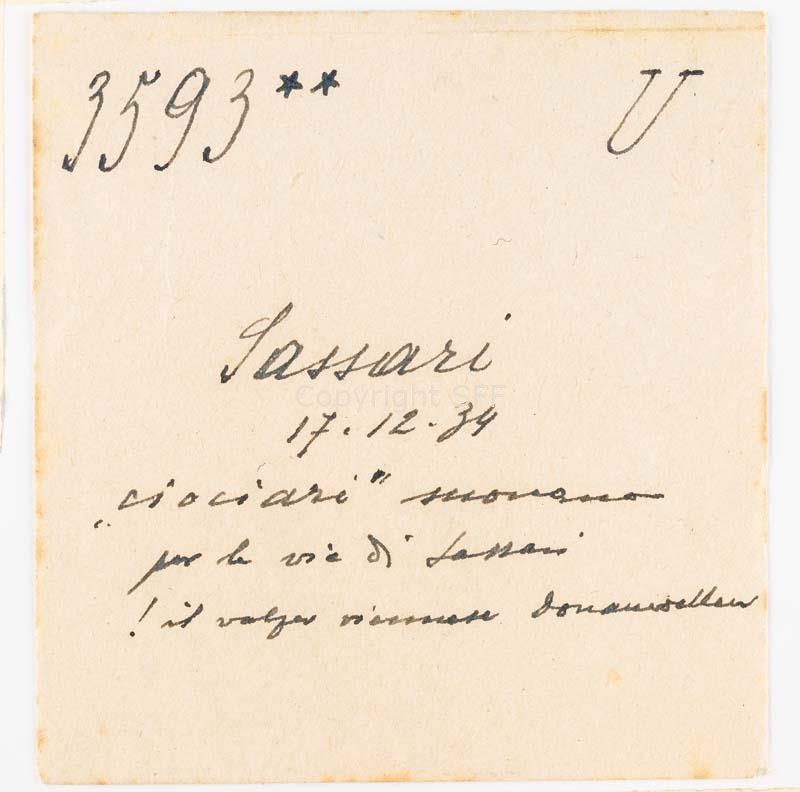 3593** U
Sassari
Copyright SFF
17.12.34
„ciociari" suonano
per le vie di Sassari
! il valzer viennese Donauwellen